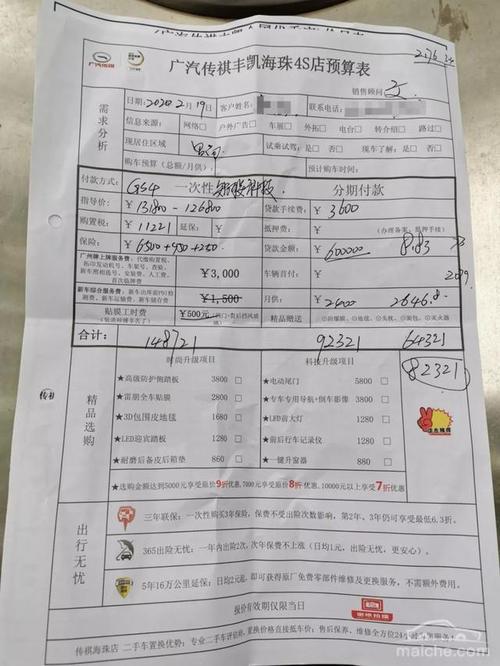 2.76
广汽传祺
广汽传祺丰凯海珠4S店预算表
销售顾问:
需求分析
日期: 2020 2月19日 客户姓名: 联系电话:
信息来源: 网络□ 户外广告□ 车展□ 外拓□ 电台□ 转介绍□ 路过□
现居住区域 试乘试驾: 是□ 否□ 现车了解: 是□ 否□
购车预算(总额/月供): 预计购车时间:
付款方式: GS4 一次性 分期付款
指导价: ¥ 131800 - 126800 贷款手续费: ¥ 3600
购置税: ¥ 11221 延保: ¥ 抵押费: ¥ (办理备案、抵押手续)
保险: ¥ 6500+950+250 贷款金额: ¥ 60000 8183
广州牌上牌服务费: 代缴购置税、拓印发动机号、车架号、查验、新车照相选号、安装费、人工费、首次临牌费 ¥3,000 车辆首付: ¥
新车综合服务费: ¥1,500 月供: ¥ 2400 2646.8
贴膜工时费 ¥500元 精品赠送 □防爆膜、□地毯、□头枕、□面包、□灭火器
合计: 148721 92321 64321
82321
传祺
精品选购
时尚升级项目 科技升级项目
★高级防护侧踏板 3800 □ ★电动尾门 5800 □
★雷朋全车贴膜 2800 □ ★专车专用导航+倒车影像 3800 □
★3D包围皮地毯 1680 □ ★LED前大灯 1280 □
★LED迎宾踏板 1280 □ ★前后行车记录仪 1280 □
★耐磨后备皮后箱垫 860 □ ★一键升窗器 880 □
★选购金额达到5000元享受原价9折优惠,7000元享受原价8折优惠,10000元以上享受7折优惠
出行无忧
三年联保: 一次性购买3年保险, 保费不受出险次数影响, 第2年、3年仍可享受最低6.3折。
365出险无忧: 一年内出险2次, 次年保费不上涨 (日均1元, 出险无忧, 更安心)。
5年16万公里延保: 日均2元起, 即可获得原厂免费零部件维修及更换服务, 不需额外费用。
报价有效期仅限当日
传祺海珠店 二手车置换优势: 专业二手车评估师, 置换价格直接抵车价; 售后保养、维修全方位24小时
maiche.com